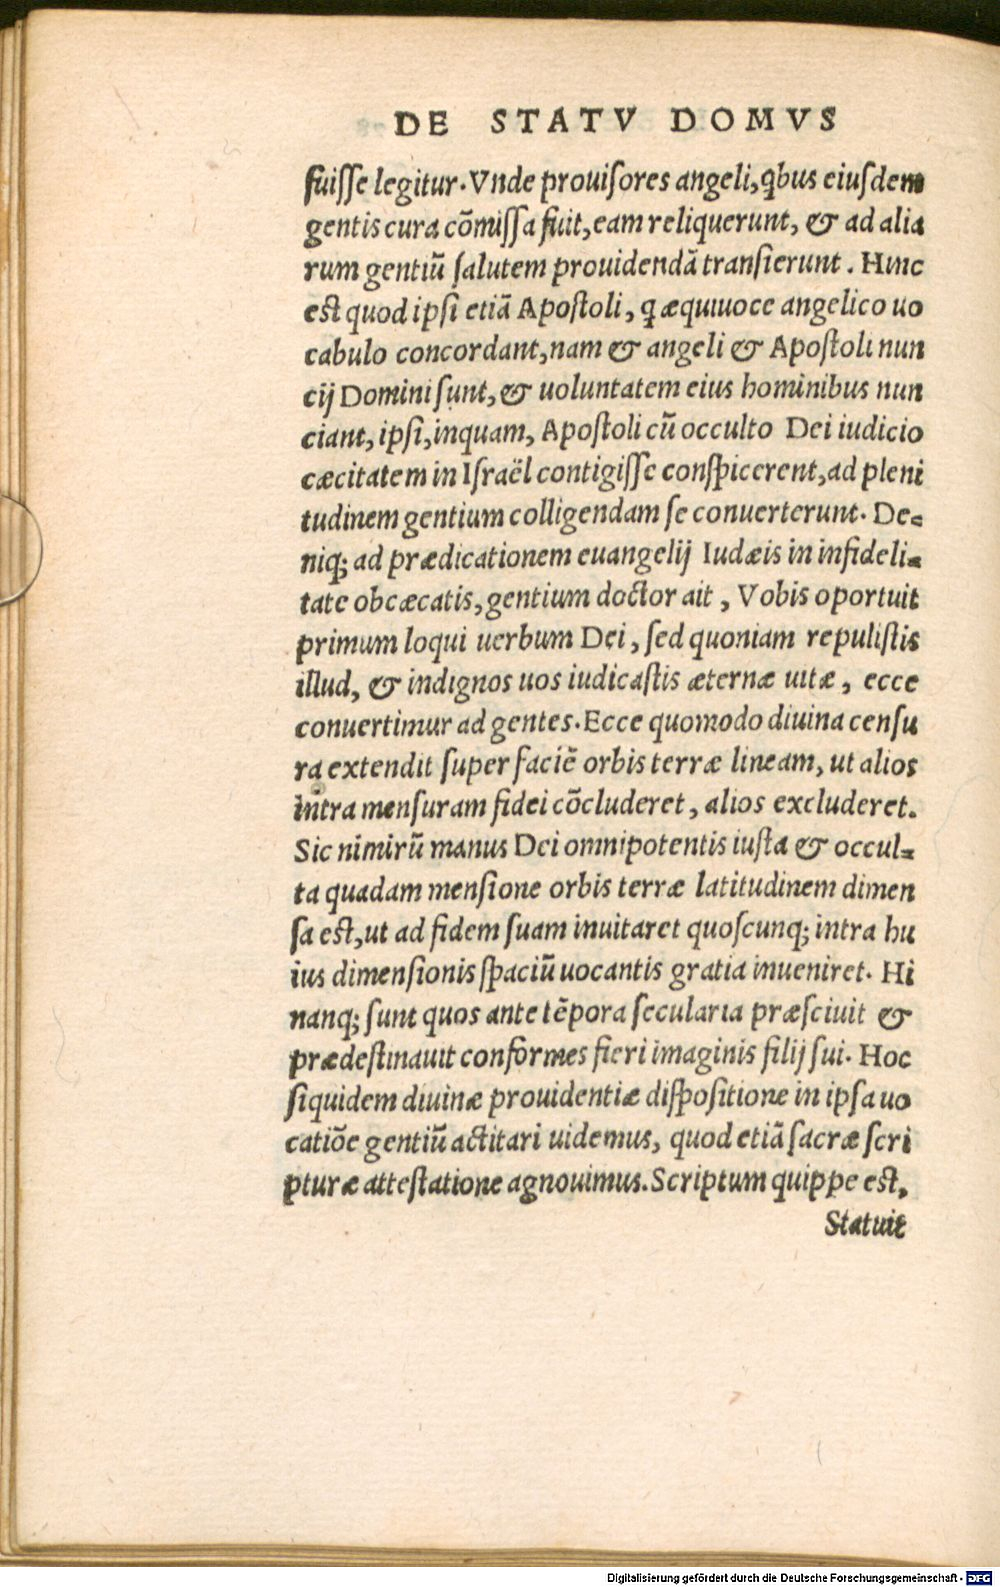 DE STATV DOMVS
fuiſſe legitur. Vnde prouiſores angeli, qbus eiuſdem
gentis cura cõmiſſa fuit, eam reliquerunt, & ad alia
rum gentiũ ſalutem prouidendã tranſierunt. Hinc
est quod ipſi etiã Apoſtoli, q æquiuoce angelico uo
cabulo concordant, nam & angeli & Apoſtoli nun
cij Domini ſunt, & uoluntatem eius hominibus nun
ciant, ipſi, inquam, Apoſtoli cũ occulto Dei iudicio
cæcitatem in Iſraël contigiſſe conſpicerent, ad pleni
tudinem gentium colligendam ſe conuerterunt. De-
niq; ad prædicationem euangelij Iudæis in infideli-
tate obcæcatis, gentium doctor ait, Vobis oportuit
primum loqui uerbum Dei, ſed quoniam repuliſtis
illud, & indignos uos iudicaſtis æternæ uitæ, ecce
conuertimur ad gentes. Ecce quomodo diuina cenſu
ra extendit ſuper faciẽ orbis terræ lineam, ut alios
intra menſuram fidei cõcluderet, alios excluderet.
Sic nimirũ manus Dei omnipotentis iuſta & occul-
ta quadam menſione orbis terræ latitudinem dimen
ſa eſt, ut ad fidem ſuam inuitaret quoſcunq; intra hu
ius dimenſionis ſpaciũ uocantis gratia inueniret. Hi
nanq; ſunt quos ante tẽpora ſecularia præſciuit &
prædeſtinauit conformes fieri imaginis filij ſui. Hoc
ſiquidem diuinæ prouidentiæ diſpoſitione in ipſa uo
catiõe gentiũ actitari uidemus, quod etiã ſacræ ſcri
pturæ atteſtatione agnouimus. Scriptum quippe eſt,
Statuit
Digitalisierung gefördert durch die Deutsche Forschungsgemeinschaft - DFG